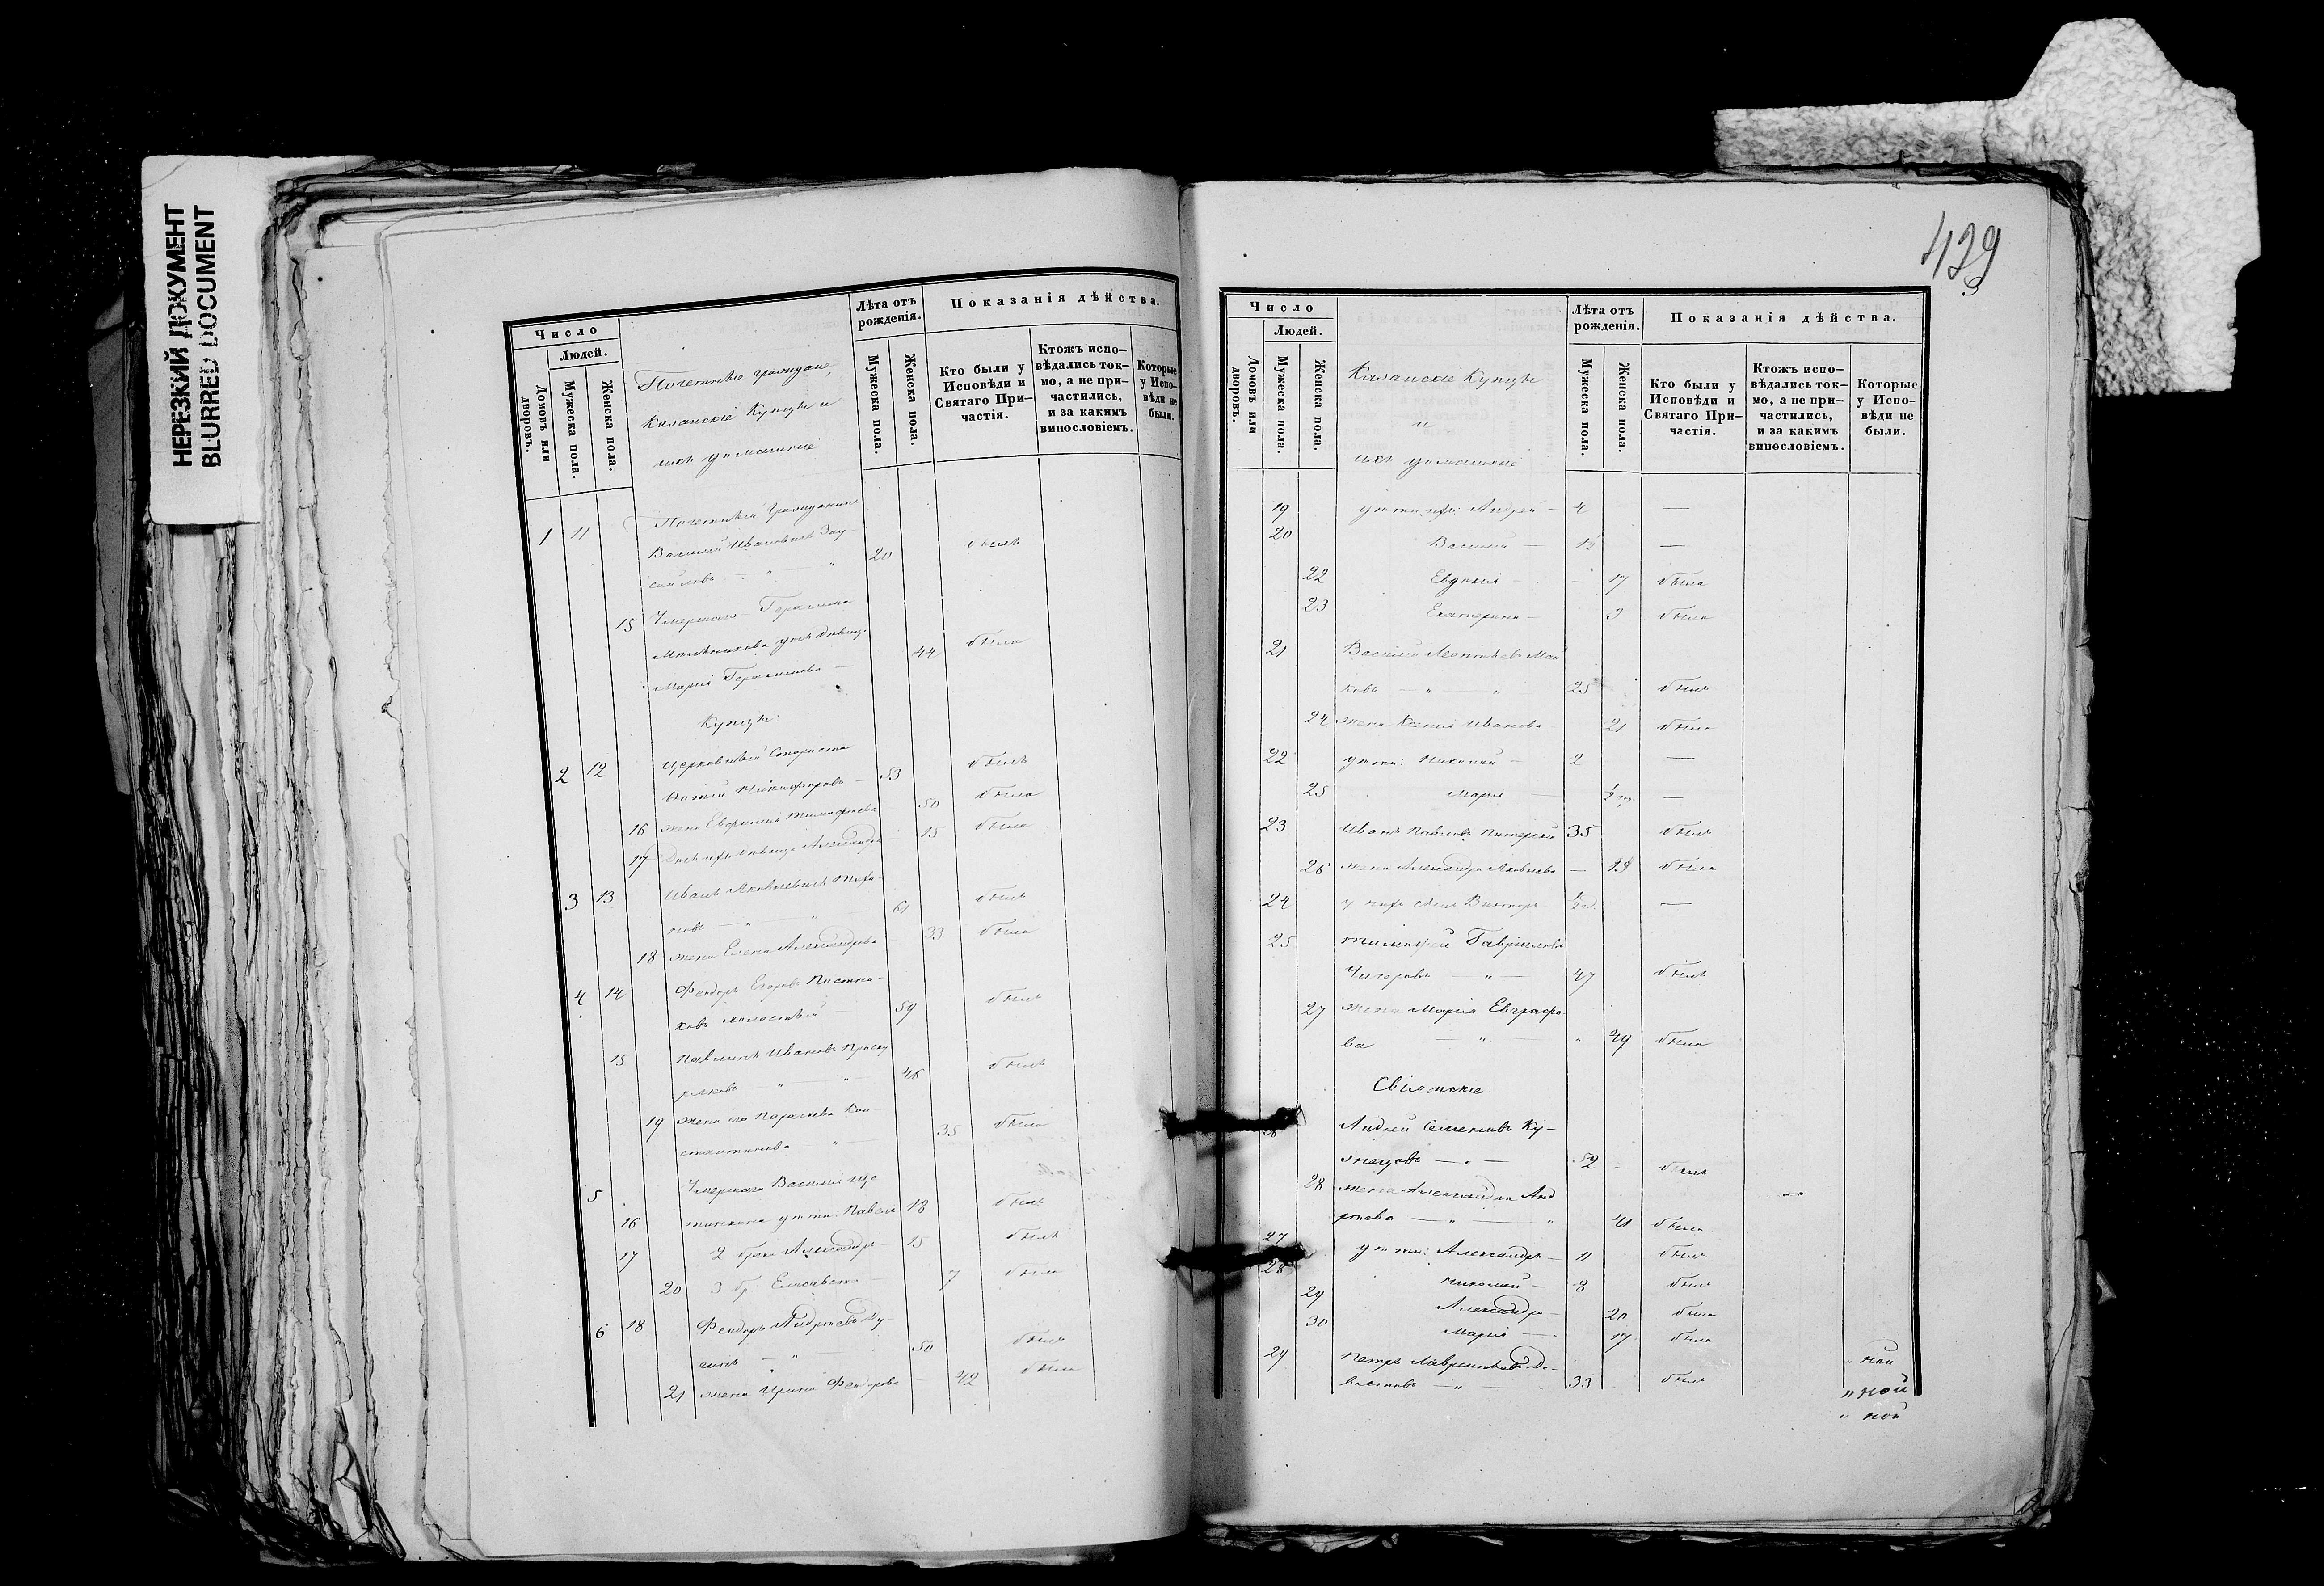 НЕРЕЗКИЙ ДОКУМЕНТ
BLURRED DOCUMENT
Число
Людей.
Домовъ или дворовъ.
Мужеска пола.
Женска пола.
Почетные граждане,
Казанскіе Купцы и
ихъ домашніе
Лѣта отъ рожденія.
Мужеска пола.
Женска пола.
Показанія дѣйства.
Кто были у Исповѣди и Святаго При-частія.
Ктожъ испо-вѣдались ток-мо, а не при-частились, и за какимъ винословіемъ.
Которые у Испо-вѣди не были.
1 11 Почетный Гражданинъ
Василій Ивановичъ Зау-
сайловъ — " " 20 былъ
15 Умершаго Герасима
Мельникова дочь девица
Марія Герасимова — 44 была
Купцы:
2 12 Церковный Староста
Никифоровъ — 53 былъ
16 жена Евфимія Тимофеева 50 была
17 дочь ихъ девица Александра — 15 была
3 13 Иванъ Яковлевичъ Тихо-
новъ — " " 61 былъ
18 жена Елена Александрова 33 была
4 14 Феодоръ Егоровъ Пестни-
ковъ холостый — 59 былъ
15 Павлинъ Ивановъ Проску-
ряковъ " " 46 былъ
19 жена его Параскева Кон-
стантинова " 35 была
5 Умершаго Василія Ще
тинкина дети: Павелъ 18 былъ
16
17 2 брака Александръ — 15 былъ
20 3 бр. Елисавета 7 была
6 18 Феодоръ Андреевъ
— " 50 былъ
21 жена Ирина Феодорова — 42 была
439
Число
Людей.
Домовъ или дворовъ.
Мужеска пола.
Женска пола.
Казанскіе Купцы
и
ихъ домашніе
Лѣта отъ рожденія.
Мужеска пола.
Женска пола.
Показанія дѣйства.
Кто были у Исповѣди и Святаго При-частія.
Ктожъ испо-вѣдались ток-мо, а не при-частились, и за какимъ винословіемъ.
Которые у Испо-вѣди не были.
19 дети ихъ: Андрей — 4 —
20 Василій — —
22 Евдокія — 17 была
23 Екатерина — 9 была
21 Василій Леонтьевъ Май
ковъ — " — " 25 былъ
24 жена Ксенія Иванова 21 была
22 дети: Николай — 2 —
25 Марія — —
23 Иванъ Павловъ 35 былъ
26 жена Александра Яковлева — 19 была
24 у нихъ сынъ Викторъ —
25 Тимофей Гавриловъ
Чичеровъ — " — 47 былъ
27 жена Марія Евграфо
ва — " — " 49 была
Свіяжскіе
Андрей Семеновъ Ку-
знецовъ — " — 52 — былъ
28 жена Александра Анд
реева — " — " 41 была
27 дети: Александръ — 11 былъ
28 Николай — 8 былъ
29 Александра — 20 была
30 Марія — 17 была
29 Петръ Лаврентьевъ
— " — 33 былъ
" ной
" ной
" ной